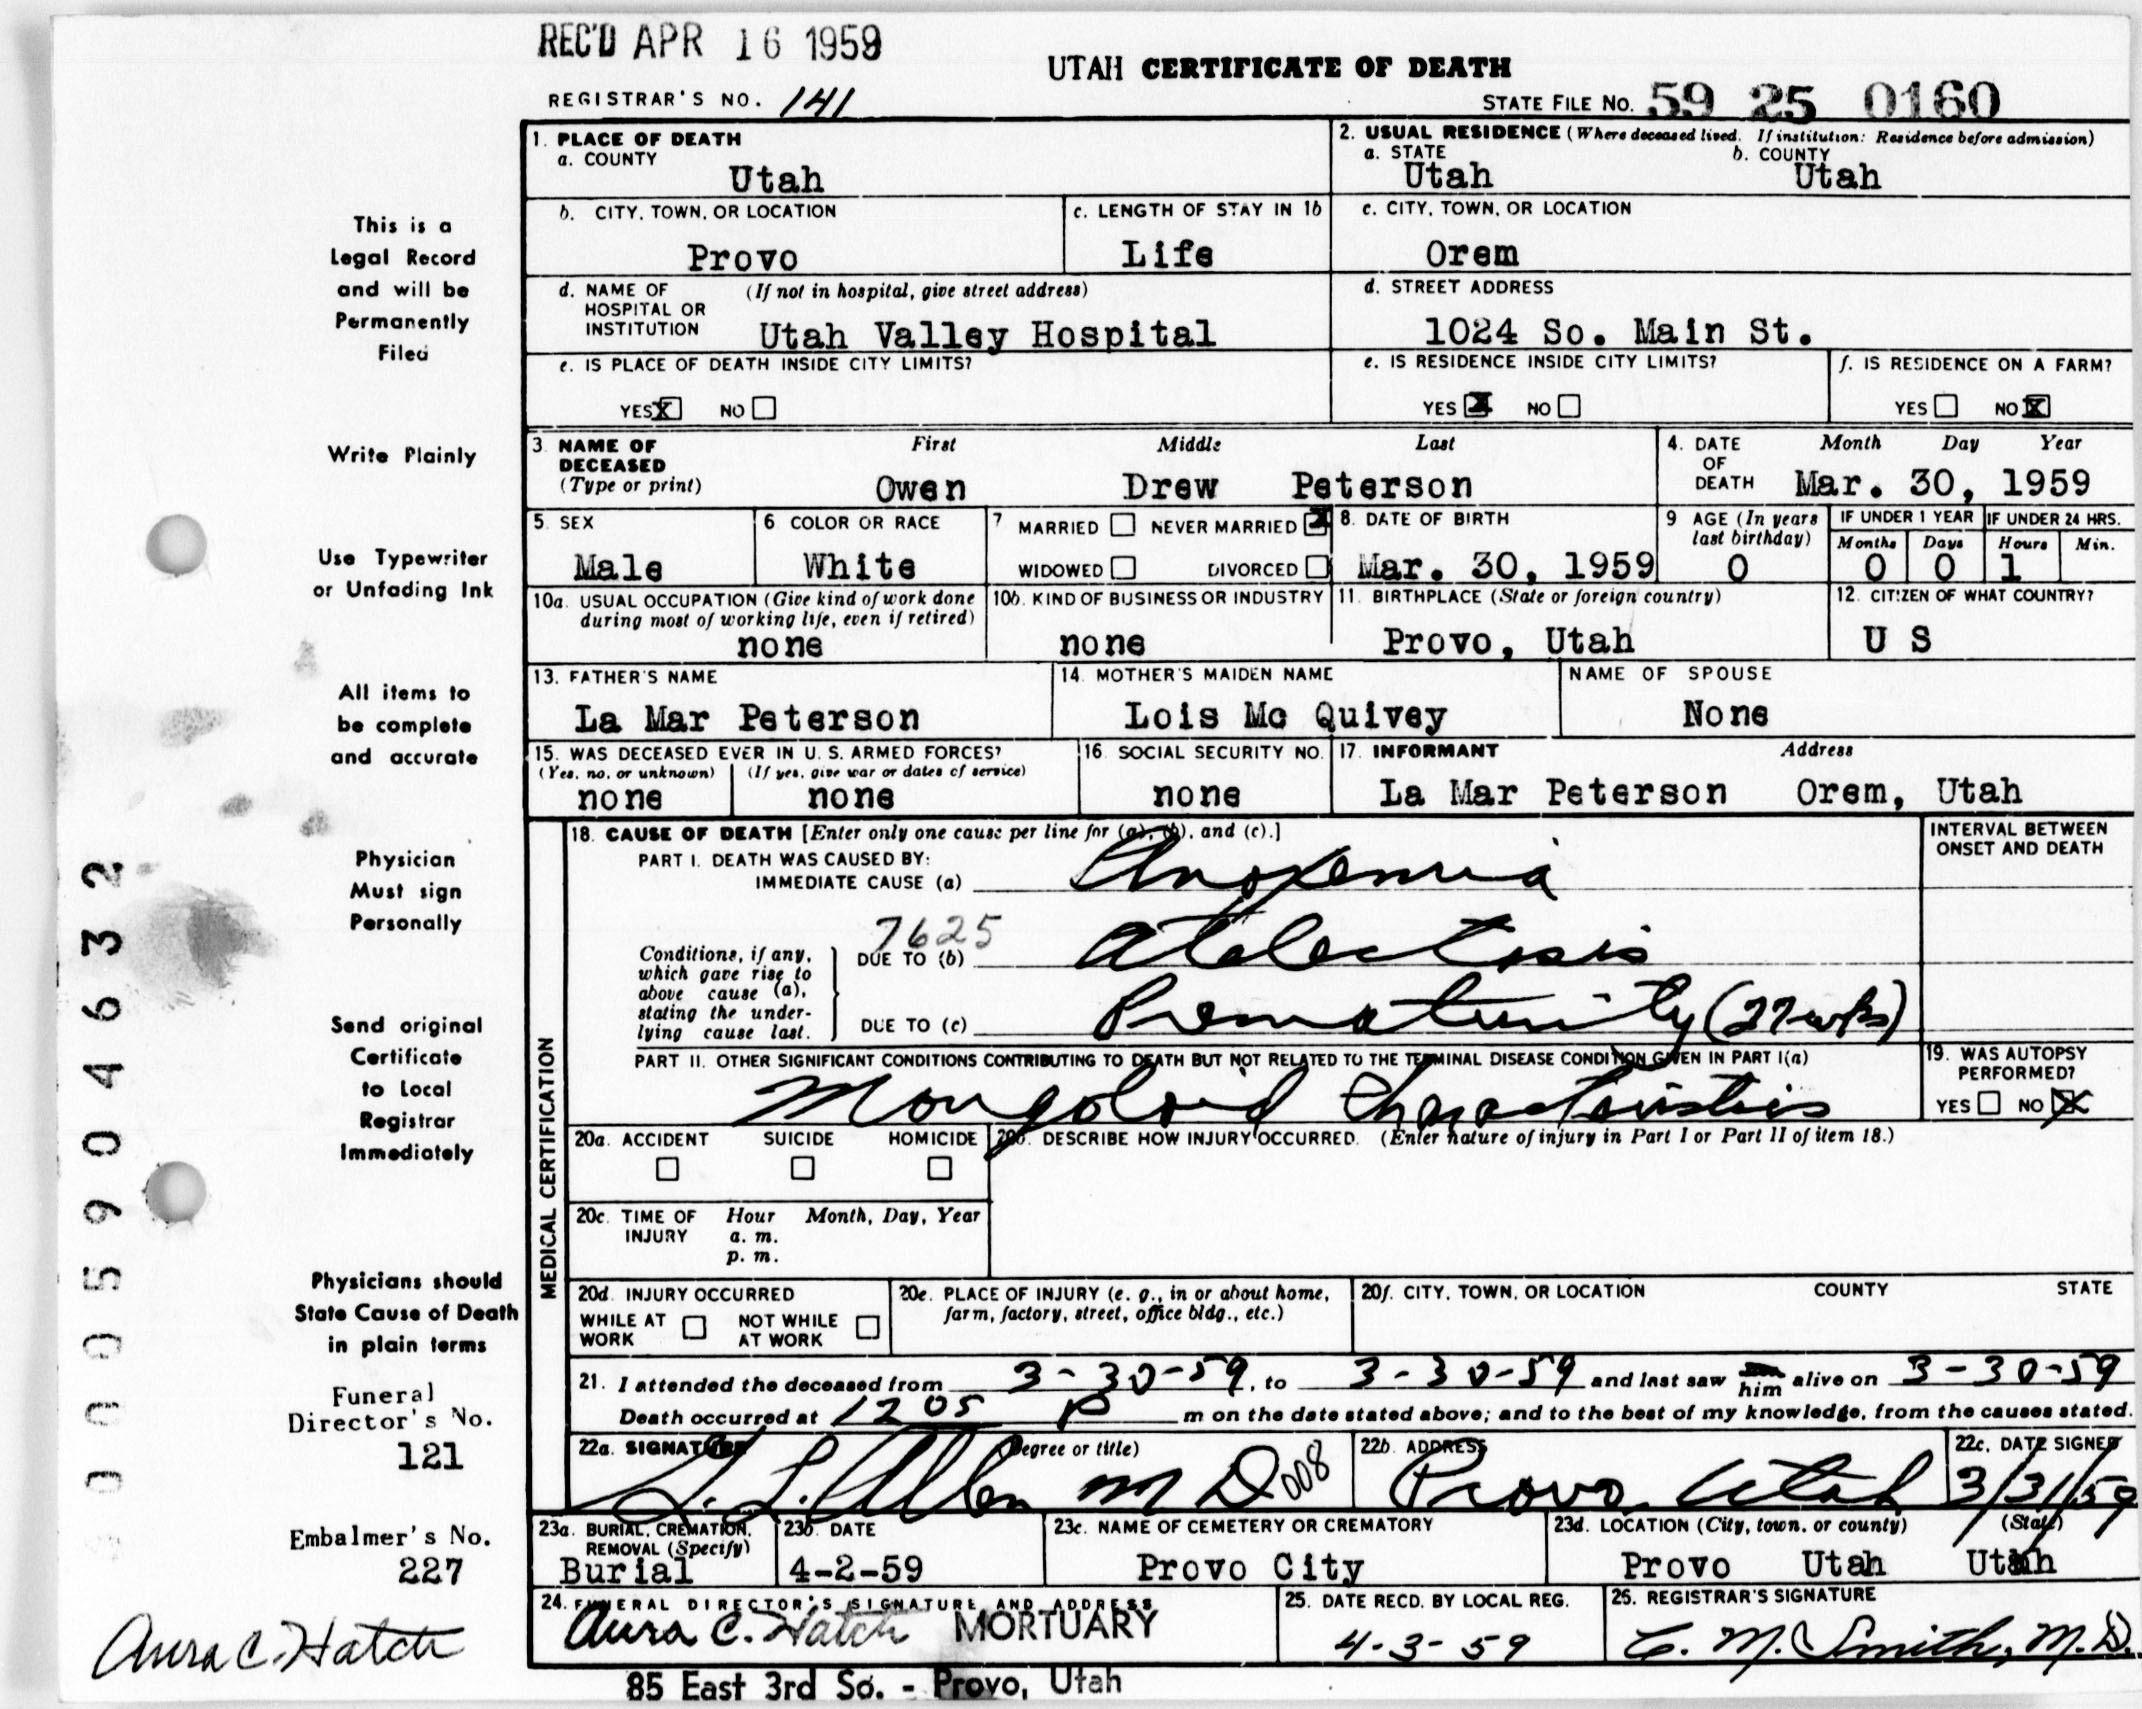 REC'D APR 16 1959
UTAH CERTIFICATE OF DEATH
REGISTRAR'S NO. 141
STATE FILE NO. 59 25 0160
1. PLACE OF DEATH
a. COUNTY
Utah
2. USUAL RESIDENCE (Where deceased lived. If institution: Residence before admission)
a. STATE
Utah
b. COUNTY
Utah
b. CITY, TOWN, OR LOCATION
Provo
c. LENGTH OF STAY IN 1b
Life
c. CITY, TOWN, OR LOCATION
Orem
d. NAME OF HOSPITAL OR INSTITUTION
(If not in hospital, give street address)
Utah Valley Hospital
d. STREET ADDRESS
1024 So. Main St.
e. IS PLACE OF DEATH INSIDE CITY LIMITS?
YES X NO
e. IS RESIDENCE INSIDE CITY LIMITS?
YES X NO
f. IS RESIDENCE ON A FARM?
YES NO X
3. NAME OF DECEASED (Type or print)
First Middle Last
Owen Drew Peterson
4. DATE OF DEATH
Month Day Year
Mar. 30, 1959
5. SEX
Male
6 COLOR OR RACE
White
7 MARRIED NEVER MARRIED X
WIDOWED DIVORCED
8. DATE OF BIRTH
Mar. 30, 1959
9 AGE (In years last birthday)
0
IF UNDER 1 YEAR
Months Days
0 0
IF UNDER 24 HRS.
Hours Min.
1
10a. USUAL OCCUPATION (Give kind of work done during most of working life, even if retired)
none
10b. KIND OF BUSINESS OR INDUSTRY
none
11. BIRTHPLACE (State or foreign country)
Provo, Utah
12. CITIZEN OF WHAT COUNTRY?
U S
13. FATHER'S NAME
La Mar Peterson
14. MOTHER'S MAIDEN NAME
Lois Mc Quivey
NAME OF SPOUSE
None
15. WAS DECEASED EVER IN U. S. ARMED FORCES?
(Yes, no, or unknown) (If yes, give war or dates of service)
none none
16. SOCIAL SECURITY NO.
none
17. INFORMANT Address
La Mar Peterson Orem, Utah
MEDICAL CERTIFICATION
18. CAUSE OF DEATH [Enter only one cause per line for (a), (b), and (c).]
PART I. DEATH WAS CAUSED BY:
IMMEDIATE CAUSE (a) Anoxemia
INTERVAL BETWEEN ONSET AND DEATH
7625
Conditions, if any, which gave rise to above cause (a), stating the underlying cause last.
DUE TO (b) Atelectasis
DUE TO (c) Prematurity (27 wks)
PART II. OTHER SIGNIFICANT CONDITIONS CONTRIBUTING TO DEATH BUT NOT RELATED TO THE TERMINAL DISEASE CONDITION GIVEN IN PART I(a)
Mongoloid characteristics
19. WAS AUTOPSY PERFORMED?
YES NO X
20a. ACCIDENT SUICIDE HOMICIDE
20b. DESCRIBE HOW INJURY OCCURRED. (Enter nature of injury in Part I or Part II of item 18.)
20c. TIME OF INJURY
Hour Month, Day, Year
a. m.
p. m.
20d. INJURY OCCURRED
WHILE AT WORK NOT WHILE AT WORK
20e. PLACE OF INJURY (e. g., in or about home, farm, factory, street, office bldg., etc.)
20f. CITY, TOWN, OR LOCATION COUNTY STATE
21. I attended the deceased from 3-30-59, to 3-30-59 and last saw him alive on 3-30-59
Death occurred at 1205 P m on the date stated above; and to the best of my knowledge, from the causes stated.
22a. SIGNATURE (Degree or title)
L. L. Allen M D 008
22b. ADDRESS
Provo Utah
22c. DATE SIGNED
3/31/59
23a. BURIAL, CREMATION, REMOVAL (Specify)
Burial
23b. DATE
4-2-59
23c. NAME OF CEMETERY OR CREMATORY
Provo City
23d. LOCATION (City, town, or county) (State)
Provo Utah Utah
24. FUNERAL DIRECTOR'S SIGNATURE AND ADDRESS
Aura C. Hatch MORTUARY
85 East 3rd So. - Provo, Utah
25. DATE RECD. BY LOCAL REG.
4-3-59
26. REGISTRAR'S SIGNATURE
C. M. Smith, M.D.
This is a
Legal Record
and will be
Permanently
Filed
Write Plainly
Use Typewriter
or Unfading Ink
All items to
be complete
and accurate
Physician
Must sign
Personally
Send original
Certificate
to Local
Registrar
Immediately
Physicians should
State Cause of Death
in plain terms
Funeral
Director's No.
121
Embalmer's No.
227
Aura C. Hatch